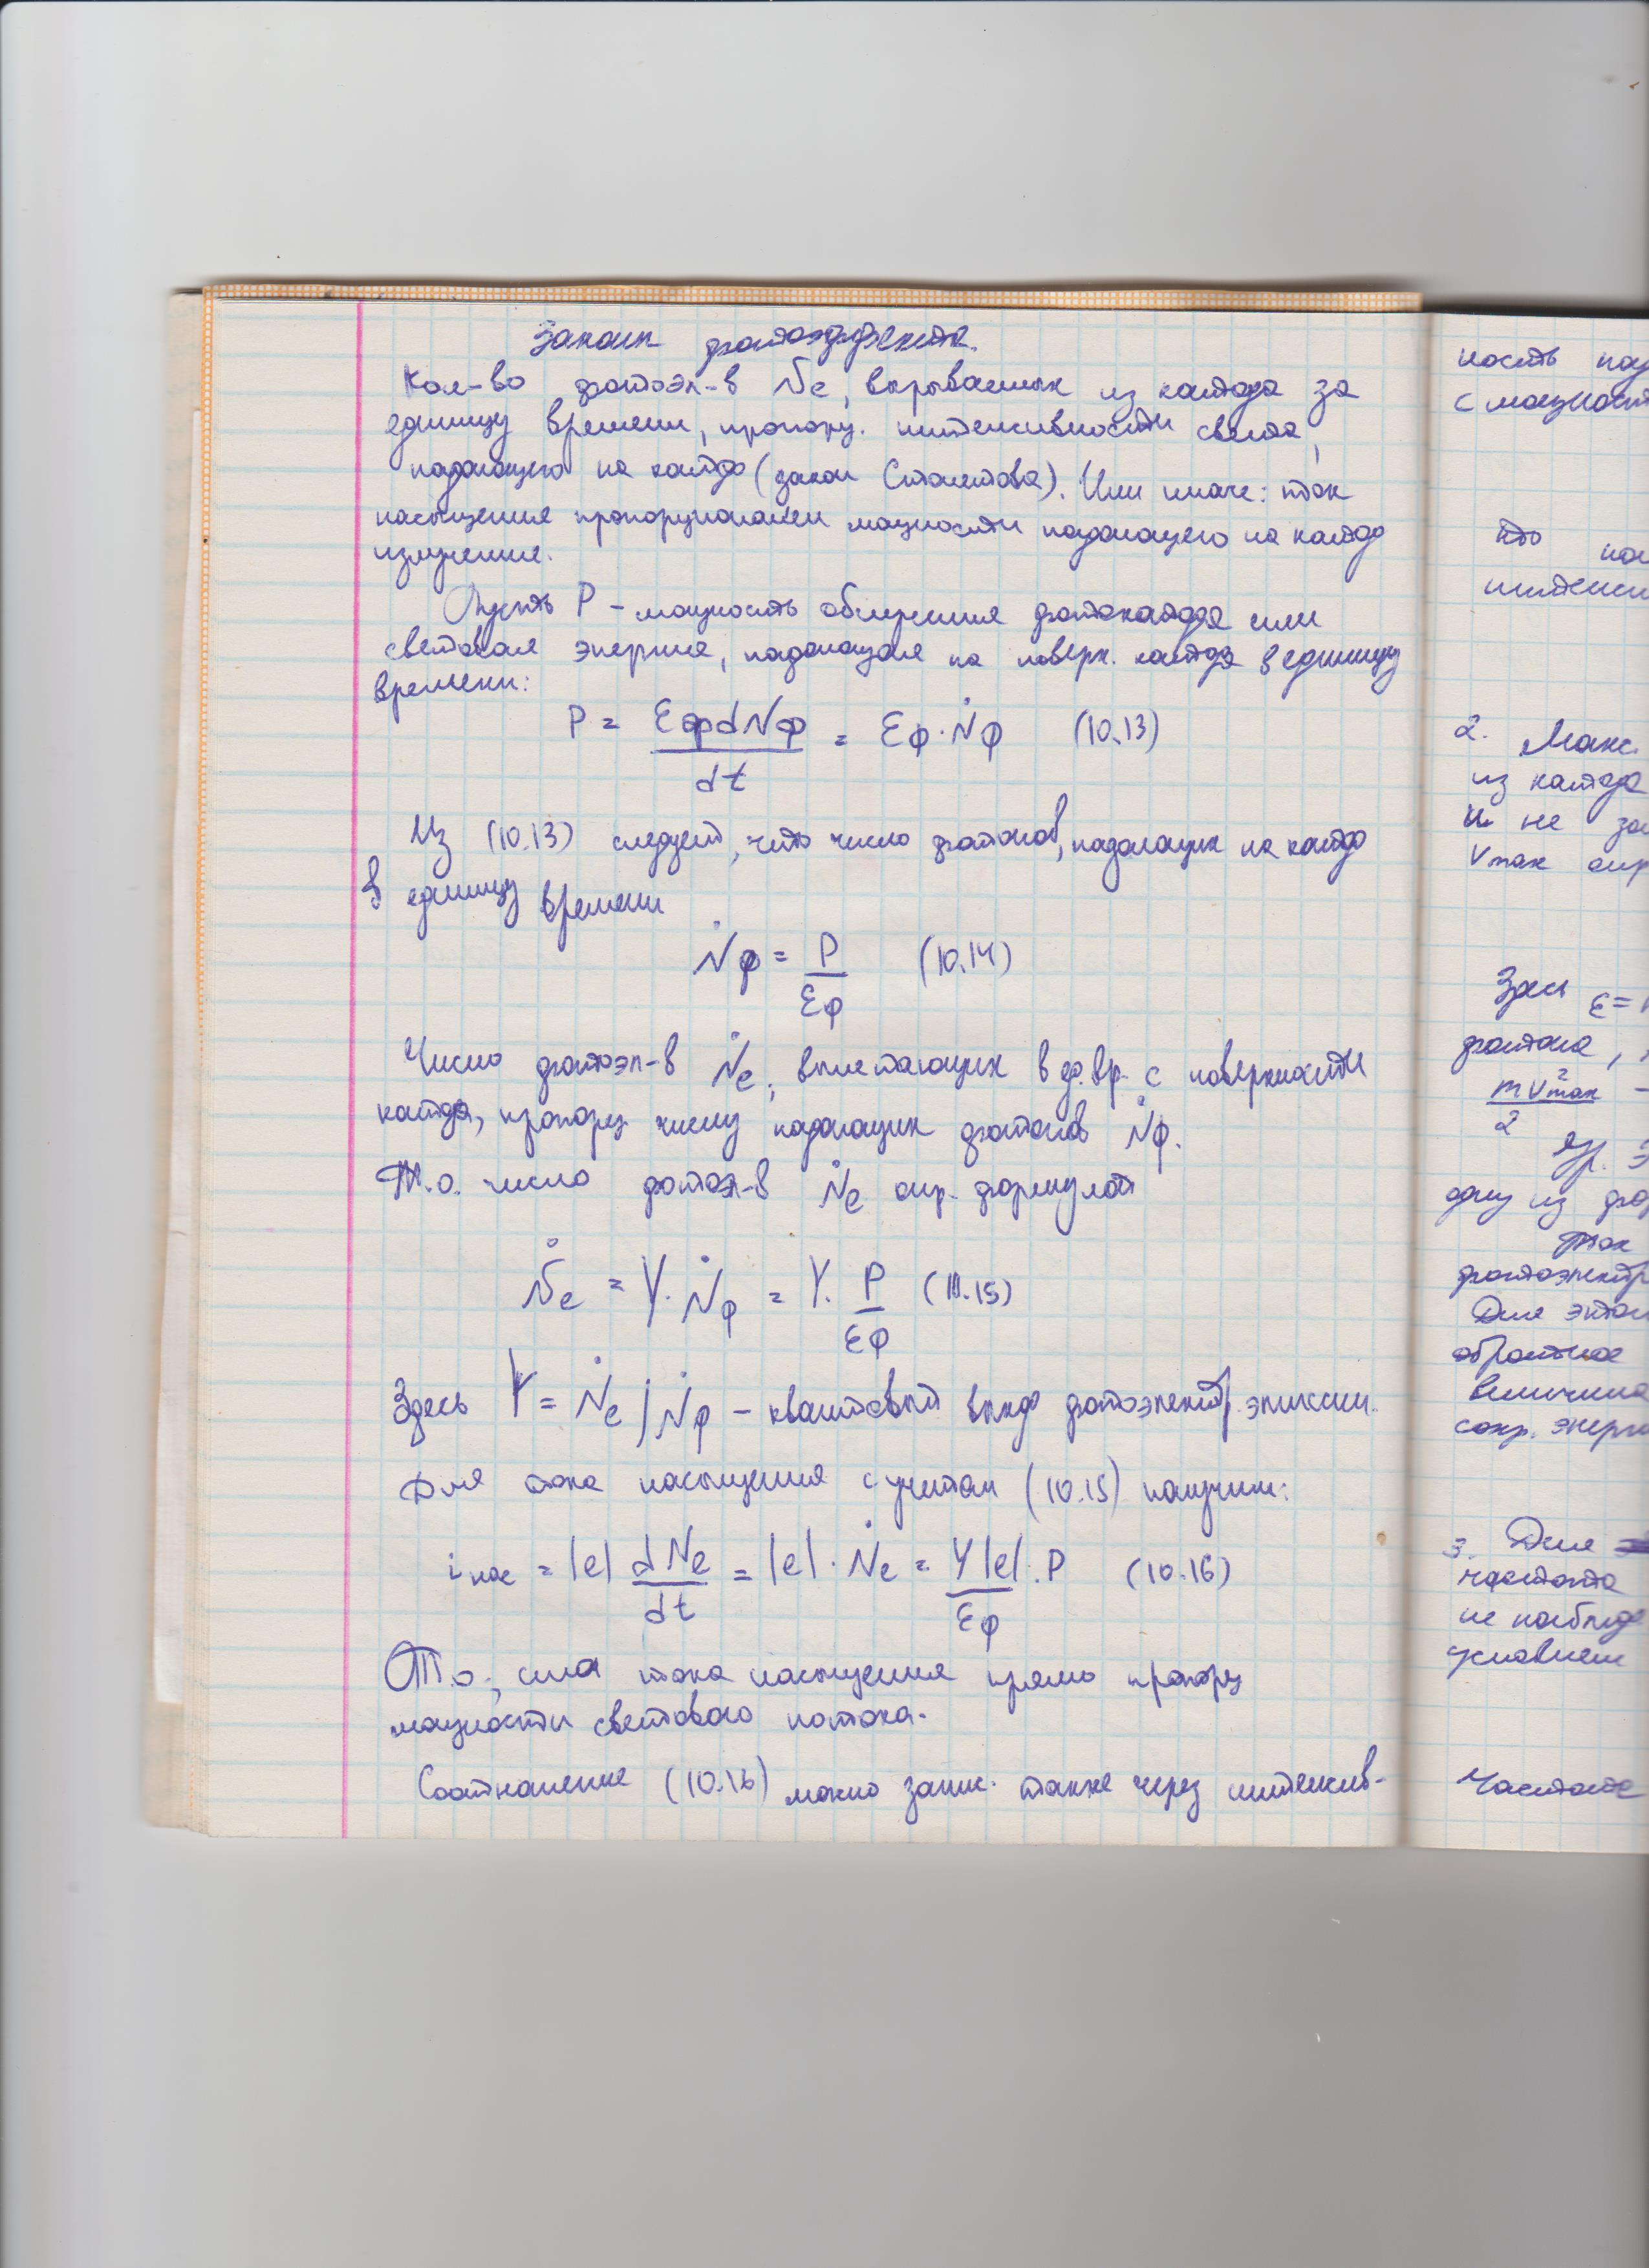 Законы фотоэффекта.
Кол-во фотоэл-в Ṅe, вырываемых из катода за
единицу времени, пропорц. интенсивности света,
падающего на катод (закон Столетова). Или иначе: ток
насыщения пропорционален мощности падающего на катод
излучения.
Пусть P – мощность облучения фотокатода или
световая энергия, падающая на поверх. катода в единицу
времени:
P = εф dNф / dt = εф · Ṅф (10.13)
Из (10.13) следует, что число фотонов, падающих на катод
в единицу времени
Ṅф = P / εф (10.14)
Число фотоэл-в Ṅe, вылетающих в ед. вр. с поверхности
катода, пропорц числу падающих фотонов Ṅф.
Т.о. число фотоэл-в Ṅe опр. формулой
Ṅe = Y · Ṅф = Y · P / εф (10.15)
Здесь Y = Ṅe / Ṅф – квантовый выход фотоэлектр. эмиссии.
Для тока насыщения с учетом (10.15) получим:
iнас = |e| dNe / dt = |e| · Ṅe = Y|e| / εф · P (10.16)
Т.о., сила тока насыщения прямо пропорц
мощности светового потока.
Соотношение (10.16) можно запис. также через интенсив-
ность
с
2. Макс.
из катода
и не
Vmax опр
ε =
фотона,
mV²max / 2 –
Ур.
одну из
фотоэлектр
Для
обратное
величина
сохр. энерги
3. Для
частота
не наблюд
условием
Частота